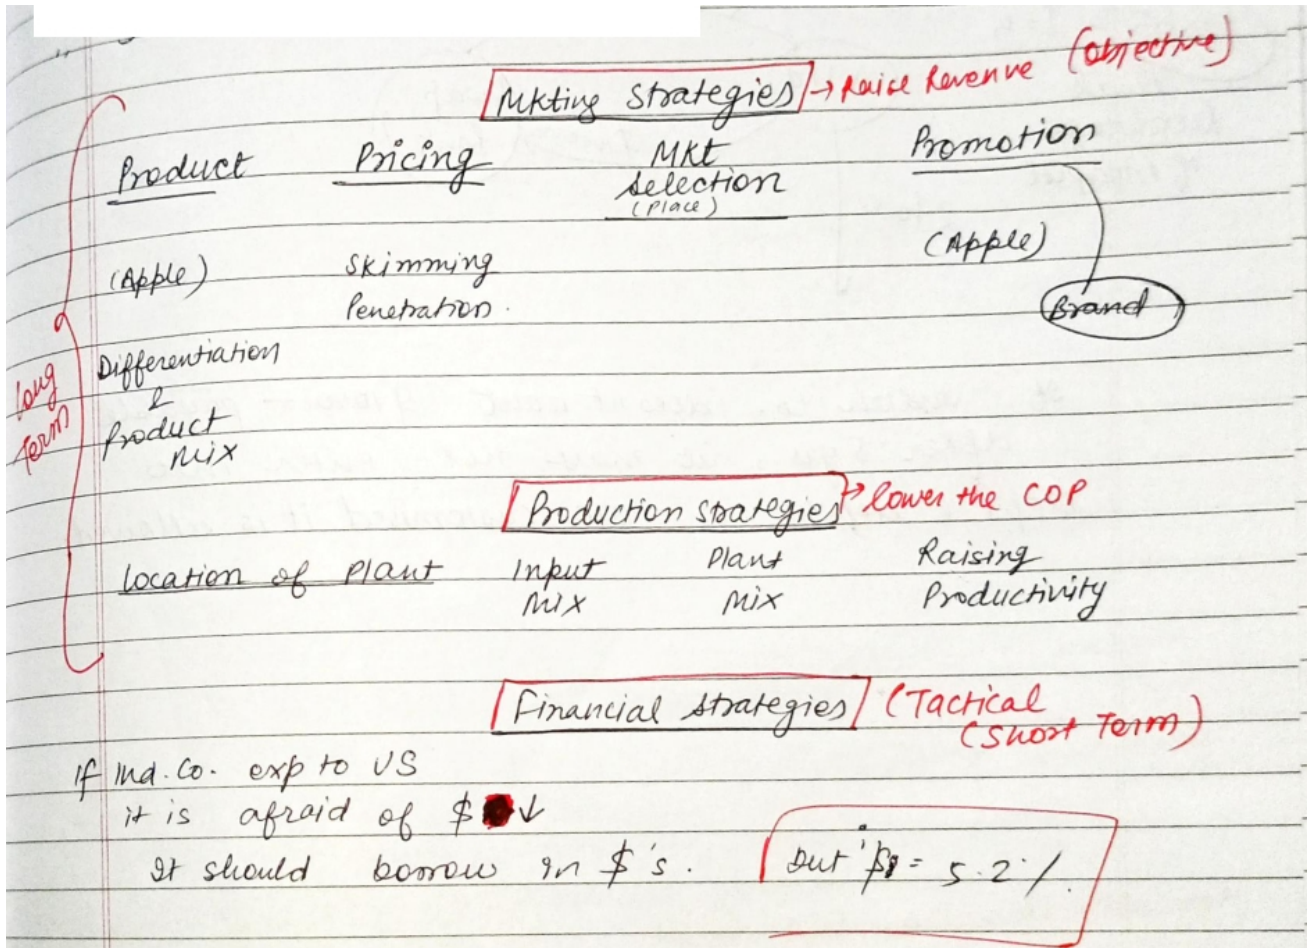 Mkting Strategies → Raise Revenue (Objective)
Product Pricing Mkt Selection (Place) Promotion
(Apple) Skimming (Apple)
Penetration. Brand
Differentiation
&
Product
Mix
Long Term
Production Strategies → lower the COP
Location of Plant Input Mix Plant Mix Raising Productivity
Financial Strategies (Tactical
(Short Term)
If Ind. Co. exp to US
it is afraid of $ ↓
It should borrow in $'s.
But i$ = 5.2%.